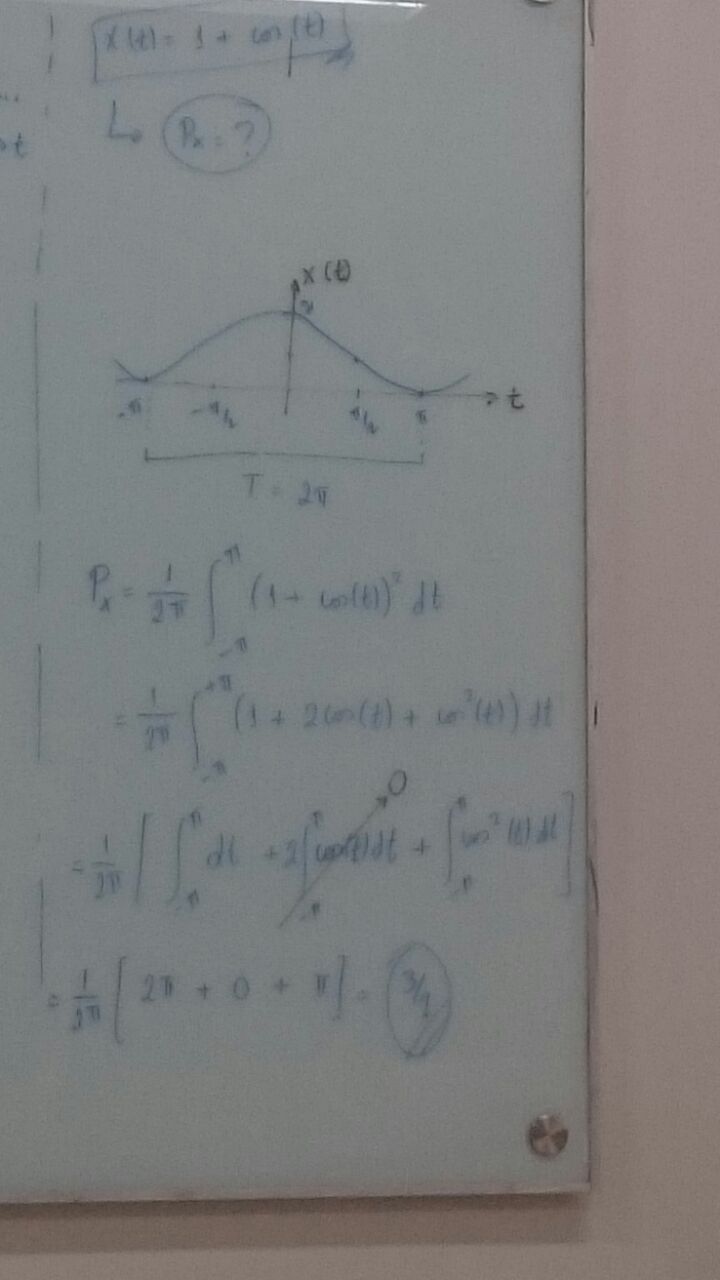 x(t) = 1 + cos(t)
...
t
↳ Px = ?
x(t)
2
-π -π/2 π/2 π t
T = 2π
Px = 1/2π ∫_{-π}^{π} (1 + cos(t))² dt
= 1/2π ∫_{-π}^{+π} (1 + 2cos(t) + cos²(t)) dt
0
= 1/2π [ ∫_{-π}^{π} dt + 2∫_{-π}^{π} cos(t) dt + ∫_{-π}^{π} cos²(t) dt ]
= 1/2π [ 2π + 0 + π ] = 3/2